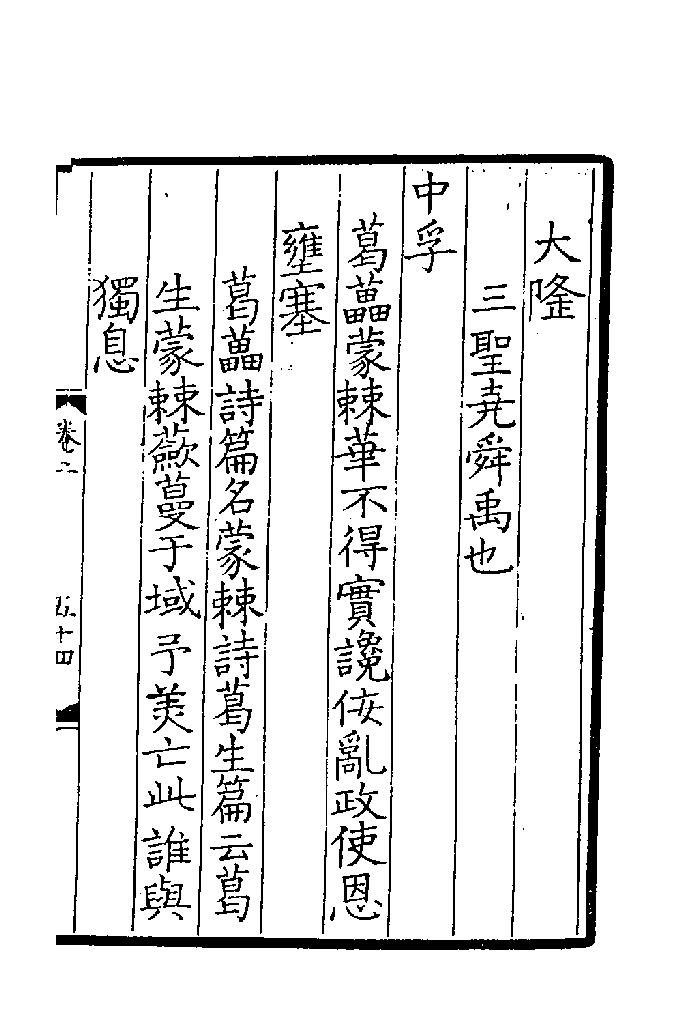 大隆
三聖堯舜禹也
中孚
葛藟蒙棘華不得實讒佞亂政使恩
壅塞
葛藟詩篇名蒙棘詩葛生篇云葛
生蒙棘蘞蔓于域予美亡此誰與
獨息
卷二
五十四